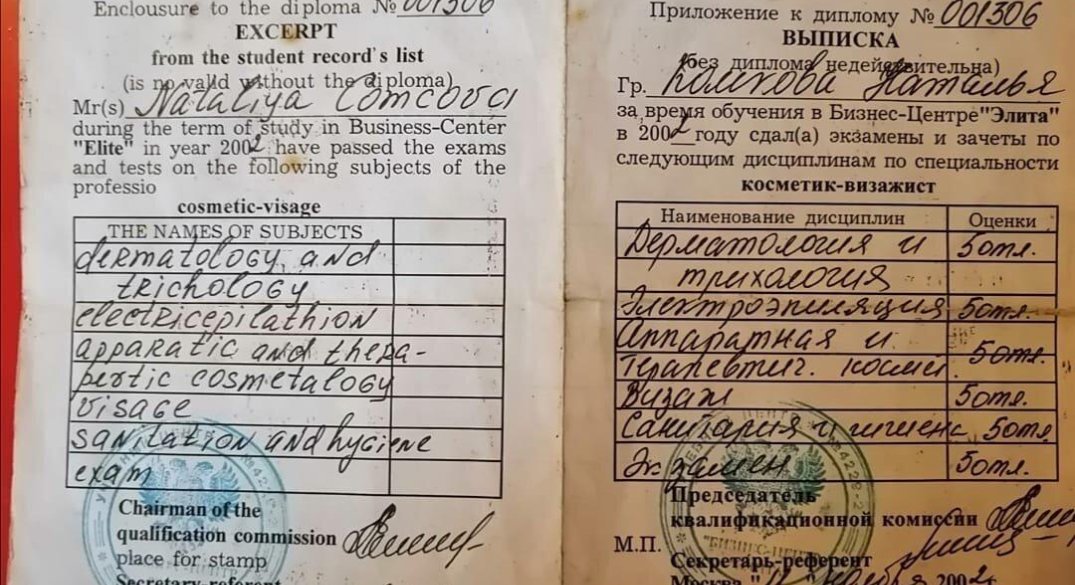 Enclousure to the diploma № 001306
EXCERPT
from the student record's list
(is no valid without the diploma)
Mr(s) Nataliya Comcova
during the term of study in Business-Center
"Elite" in year 2002 have passed the exams
and tests on the following subjects of the
professio
cosmetic-visage
THE NAMES OF SUBJECTS
dermatology and
trichology
electricepilathion
apparatic and thepa-
pertic cosmetalogy
visage
sanitation and hygiene
exam
Chairman of the
qualification commission
place for stamp
Secretary-referent
Приложение к диплому № 001306
ВЫПИСКА
(без диплома недействительна)
Гр. Комкова Наталья
за время обучения в Бизнес-Центре "Элита"
в 2002 году сдал(а) экзамены и зачеты по
следующим дисциплинам по специальности
косметик-визажист
Наименование дисциплин Оценки
Дерматология и 5 отл.
трихология
Электроэпиляция 5 отл.
Аппаратная и
Терапевтич. косми. 5 отл.
Визаж 5 отл.
Санитария и гигиена 5 отл.
Экзамен 5 отл.
Председатель
квалификационной комиссии
М.П.
Секретарь-референт
Москва "12" ноября 2002